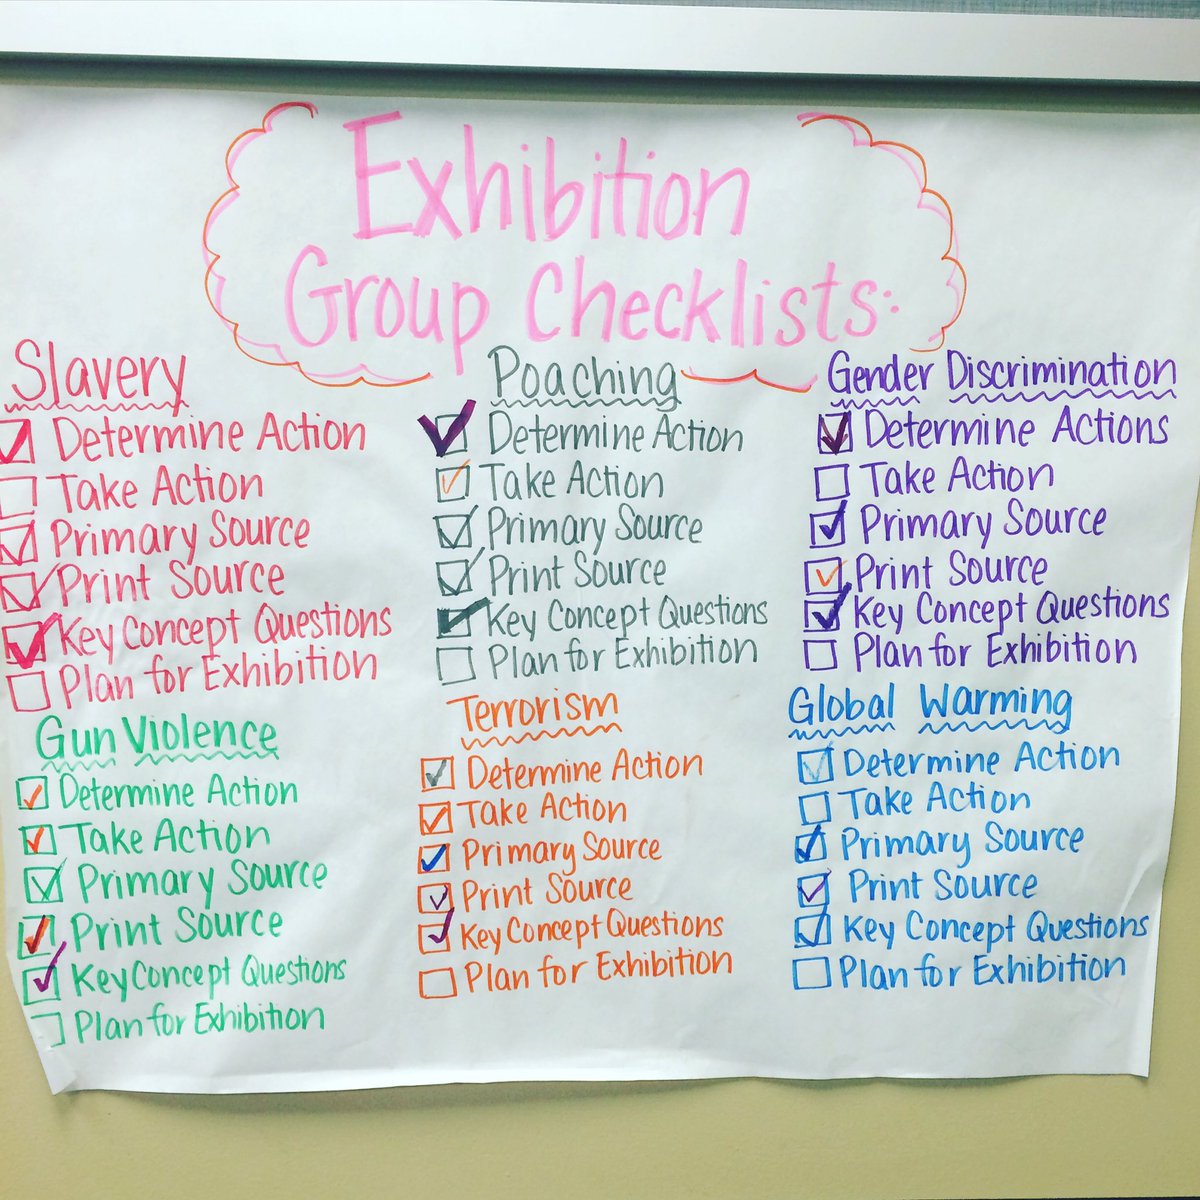 Exhibition
Group Checklists:
Slavery
Determine Action
Take Action
Primary Source
Print Source
Key Concept Questions
Plan for Exhibition
Poaching
Determine Action
Take Action
Primary Source
Print Source
Key Concept Questions
Plan for Exhibition
Gender Discrimination
Determine Actions
Take Action
Primary Source
Print Source
Key Concept Questions
Plan for Exhibition
Gun Violence
Determine Action
Take Action
Primary Source
Print Source
Key Concept Questions
Plan for Exhibition
Terrorism
Determine Action
Take Action
Primary Source
Print Source
Key Concept Questions
Plan for Exhibition
Global Warming
Determine Action
Take Action
Primary Source
Print Source
Key Concept Questions
Plan for Exhibition